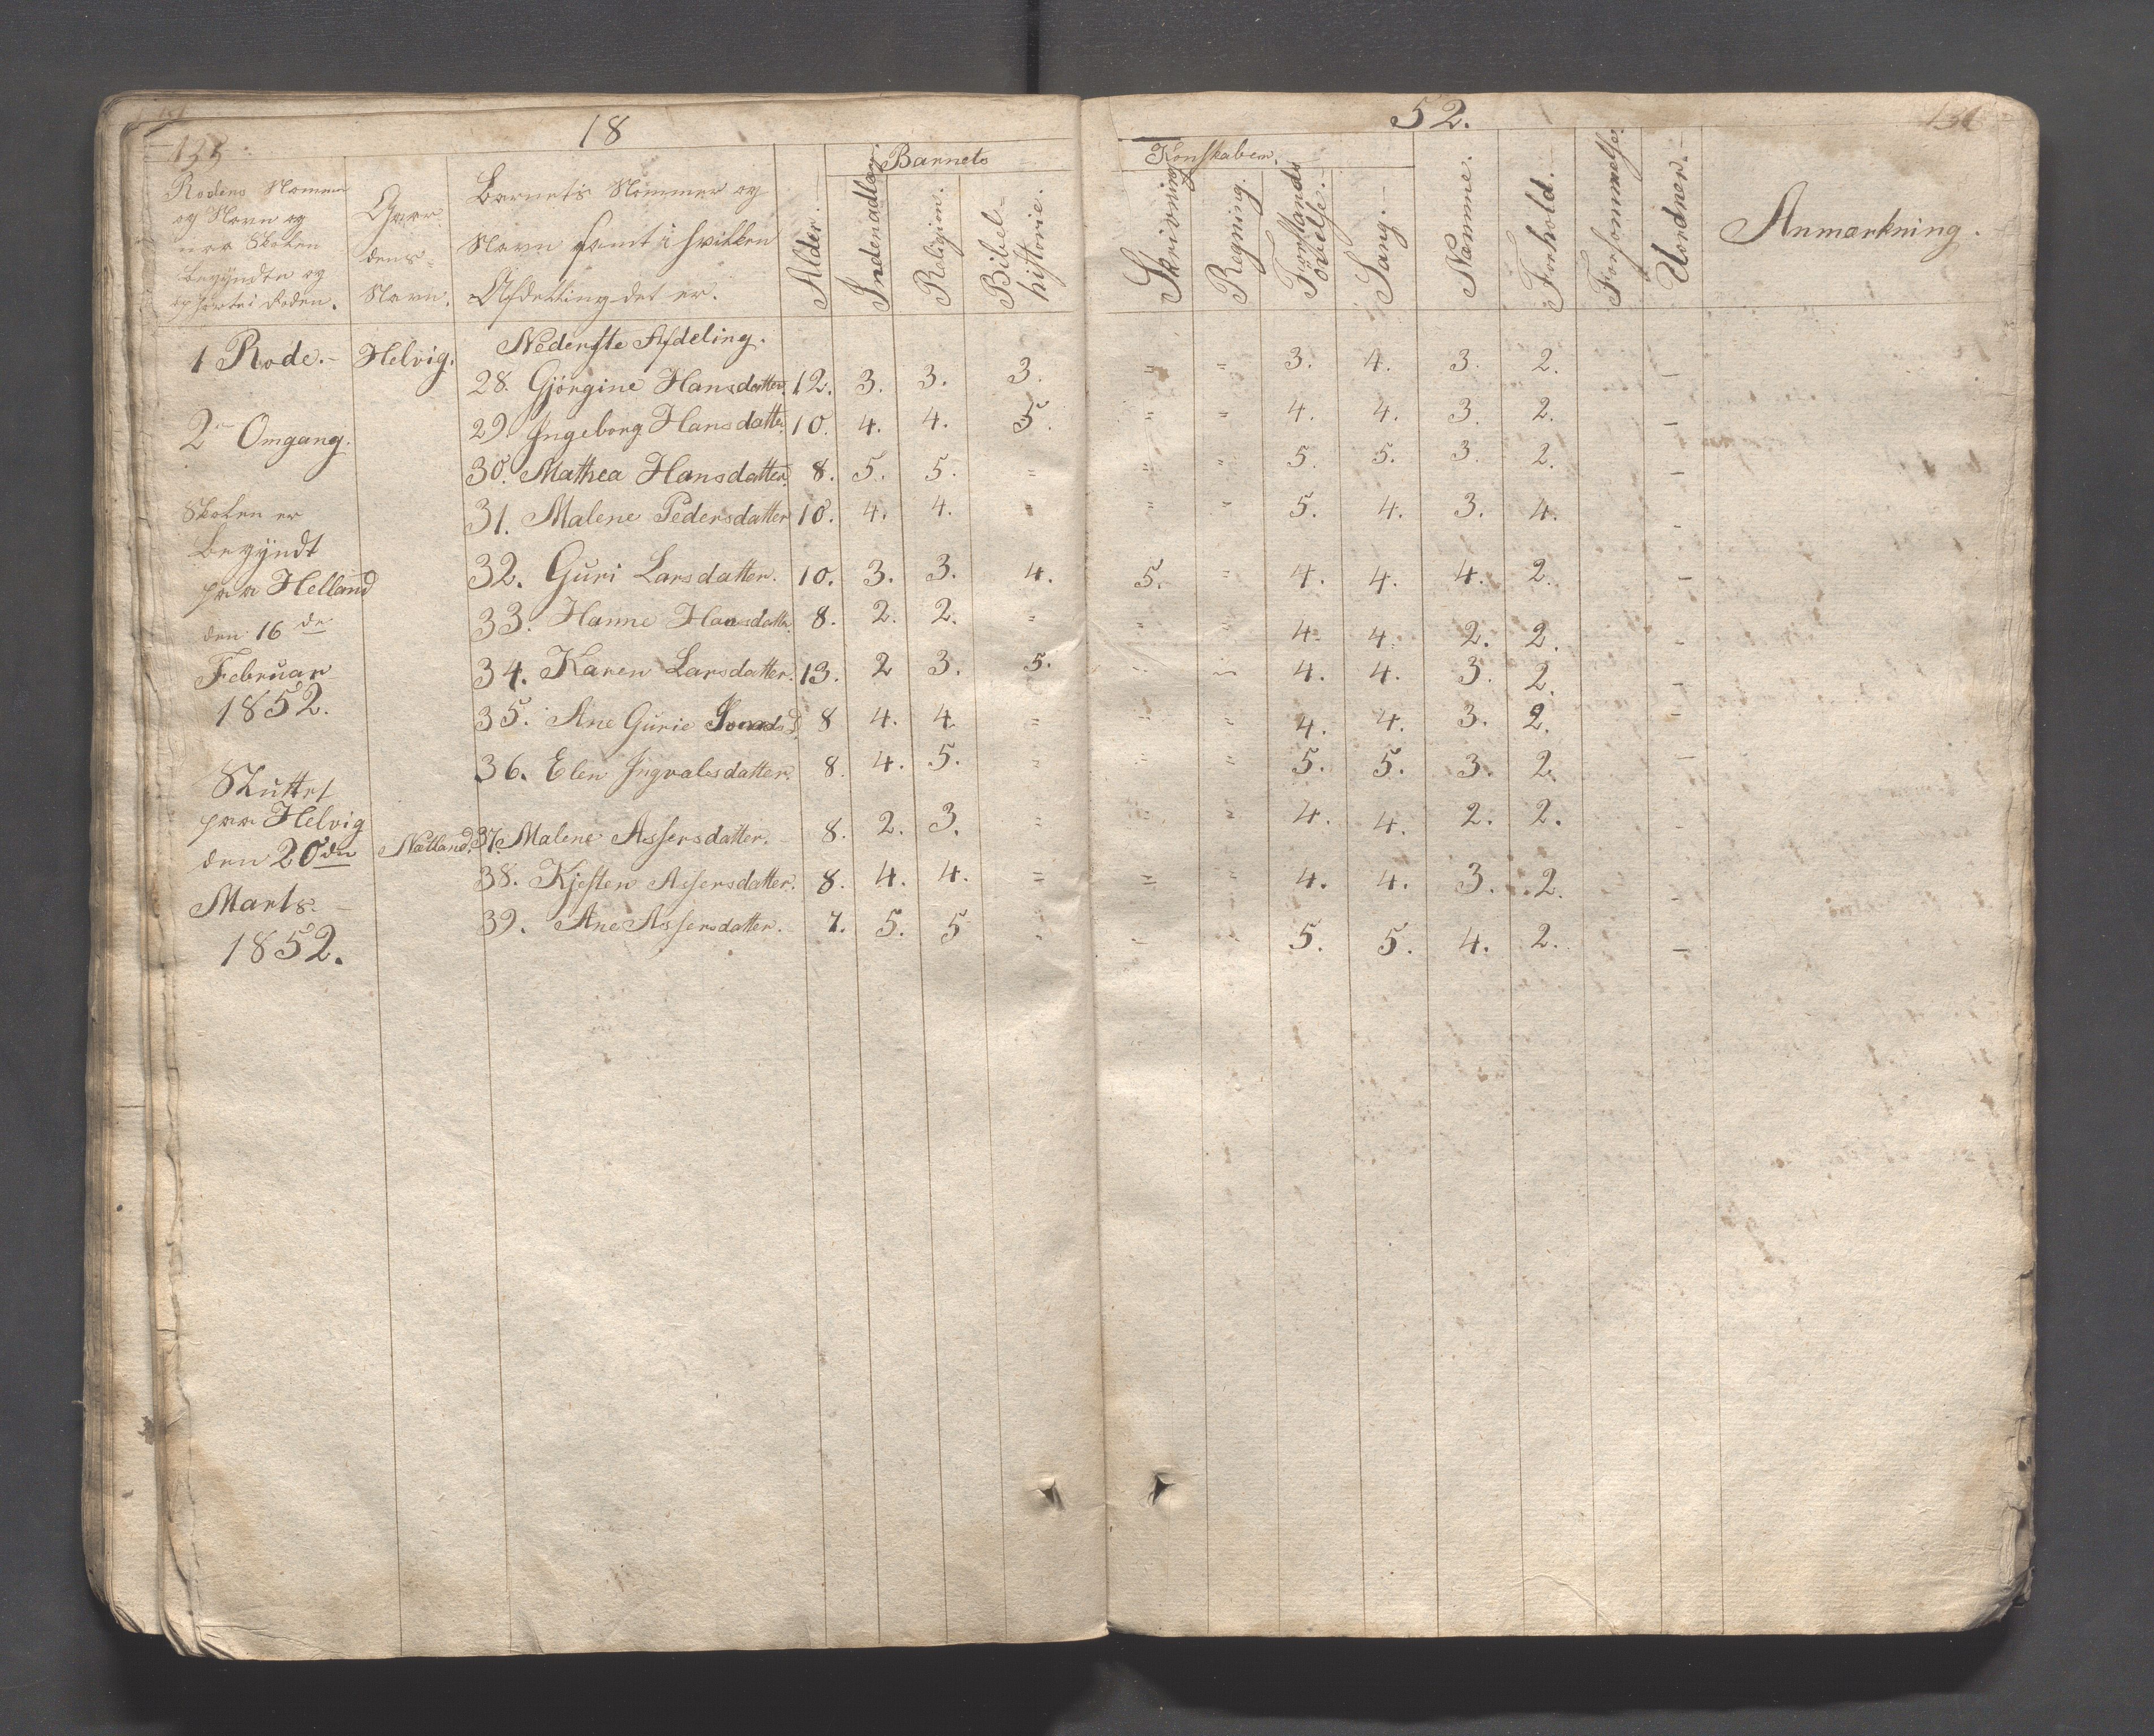 18
52.
135
Rodens Nommer
og Navn og
naar Skolen
begyndte og
ophørte i Roden.
Gaar
dens
Navn.
Barnets Nommer og
Navn samt i hvilken
Afdeling det er.
Alder.
Barnets
Indenadlæs.
Religion.
Bibel-
historie.
Kunskaber.
Skrivning
Regning.
Forstands
øvelse.
Sang.
Nemme.
Forhold.
Forsømmelse.
Uordner.
Anmærkning.
1 Rode. Helvig. Nederste Afdeling.
28. Gjørgine Hansdatter. 12. 3. 3. 3. " " 3. 4. 3. 2. –
2 Omgang. 29. Ingeborg Hansdatter 10. 4. 4. 5. " " 4. 4. 3. 2. –
30. Mathea Hansdatter. 8. 5. 5. " " " 5. 5. 3. 2. –
Skolen er 31. Malene Pedersdatter 10. 4. 4. " " " 5. 4. 3. 4. –
begyndt
paa Helland 32. Guri Larsdatter. 10. 3. 3. 4. 5. " 4. 4. 4. 2. –
den 16 de 33. Hanne Hansdatter. 8. 2. 2. " " " 4. 4. 2. 2. –
Februar 34. Karen Larsdatter. 13. 2 3. 5. " " 4. 4. 3. 2. –
1852. 35. Ane Gurie 8 4. 4 " " " 4. 4. 3. 2. –
36. Elen Ingvalsdatter. 8. 4. 5. " " " 5. 5. 3. 2. –
Sluttet
paa Helvig
den 20 den Nætland. 37. Malene Assersdatter. 8. 2. 3. " " " 4. 4. 2. 2. –
38. Kjesten Assersdatter. 8. 4. 4. " " " 4. 4. 3. 2. –
Marts. 39. Ane Assersdatter. 7. 5. 5 " " " 5. 5. 4. 2. –
1852.